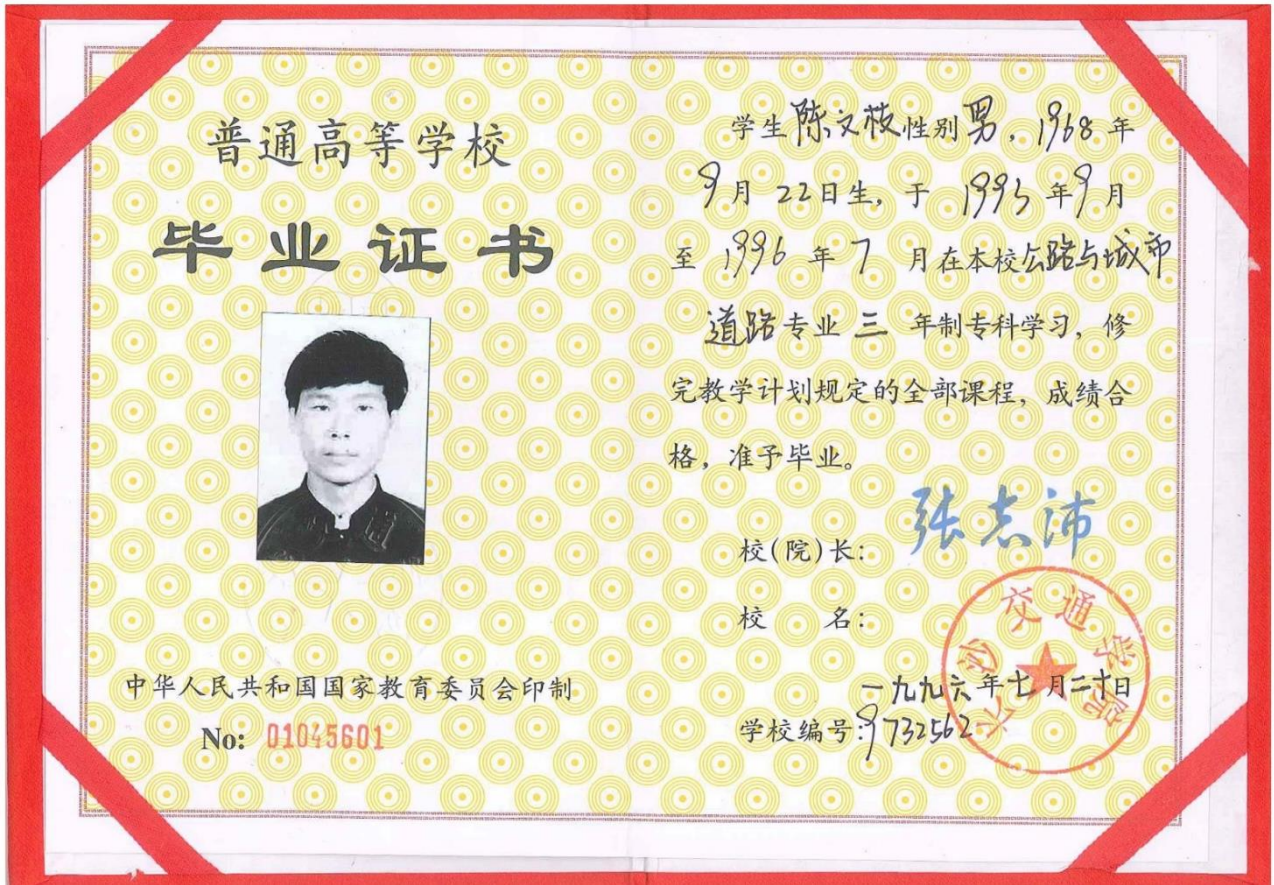 普通高等学校
毕业证书
中华人民共和国国家教育委员会印制
No: 01045601
学生陈文枝性别男，1968年
9月22日生，于1993年9月
至1996年7月在本校公路与城市
道路专业三年制专科学习，修
完教学计划规定的全部课程，成绩合
格，准予毕业。
校(院)长：张志沛
校名：
长沙交通学院
一九九六年七月二十日
学校编号：9732562